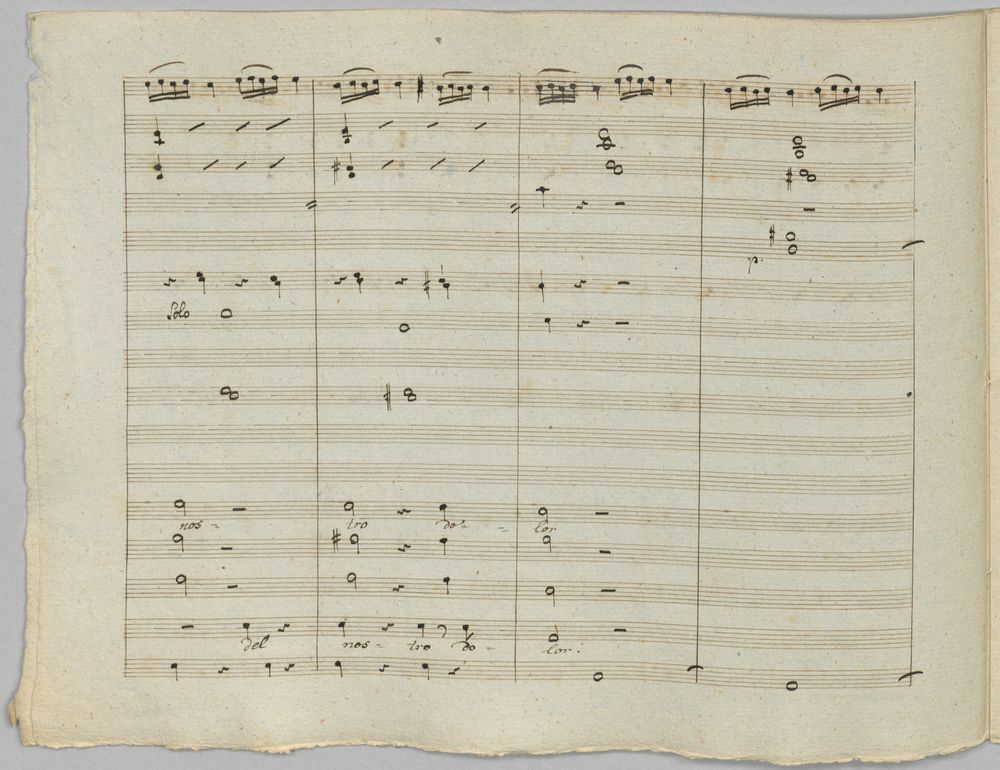 p.
Solo
nos - tro do - lor
del nos - tro do - lor: